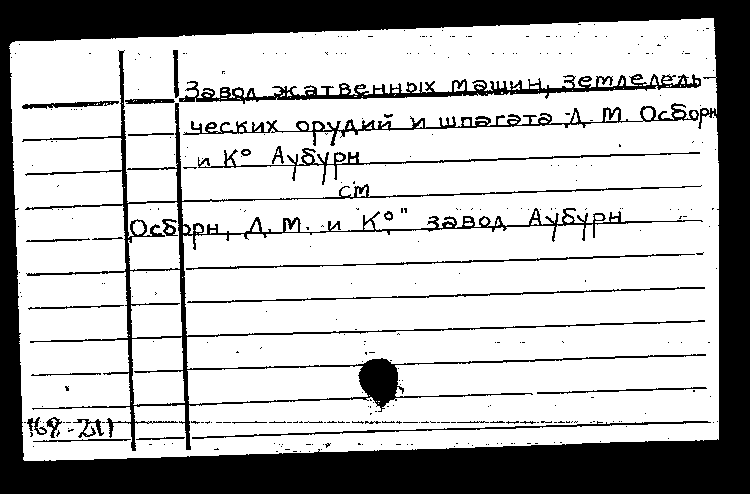 Завод жатвенных машин, земледель-
ческих орудий и шпагата Д. М. Осборн
и К° Аубурн
см
Осборн, Д. М. и К°" завод Аубурн